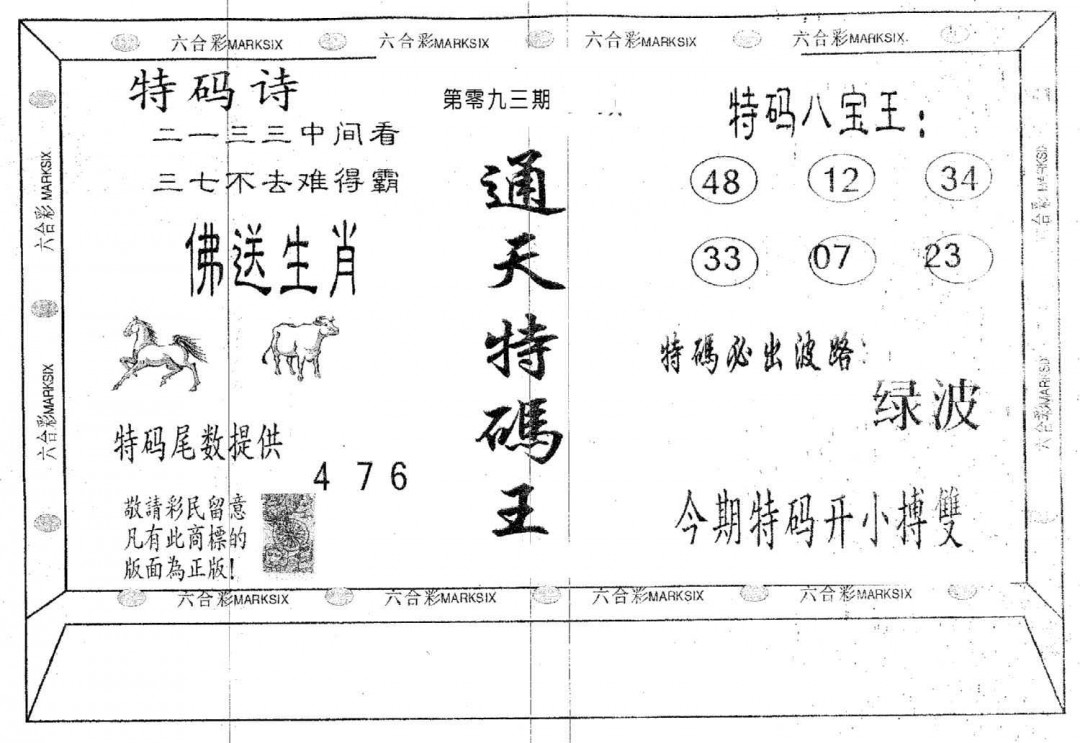 六合彩MARKSIX 六合彩MARKSIX 六合彩MARKSIX 六合彩MARKSIX.
特码诗
二一三三中间看
三七不去难得霸
佛送生肖
特码尾数提供
4 7 6
敬請彩民留意
凡有此商標的
版面為正版!
第零九三期
通天特碼王
特码八宝王:
48 12 34
33 07 23
特碼必出波路:
绿波
今期特码开小搏雙
六合彩MARKSIX
六合彩MARKSIX
六合彩MARKSIX
六合彩MARKSIX
六合彩MARKSIX 六合彩MARKSIX 六合彩MARKSIX 六合彩MARKSIX